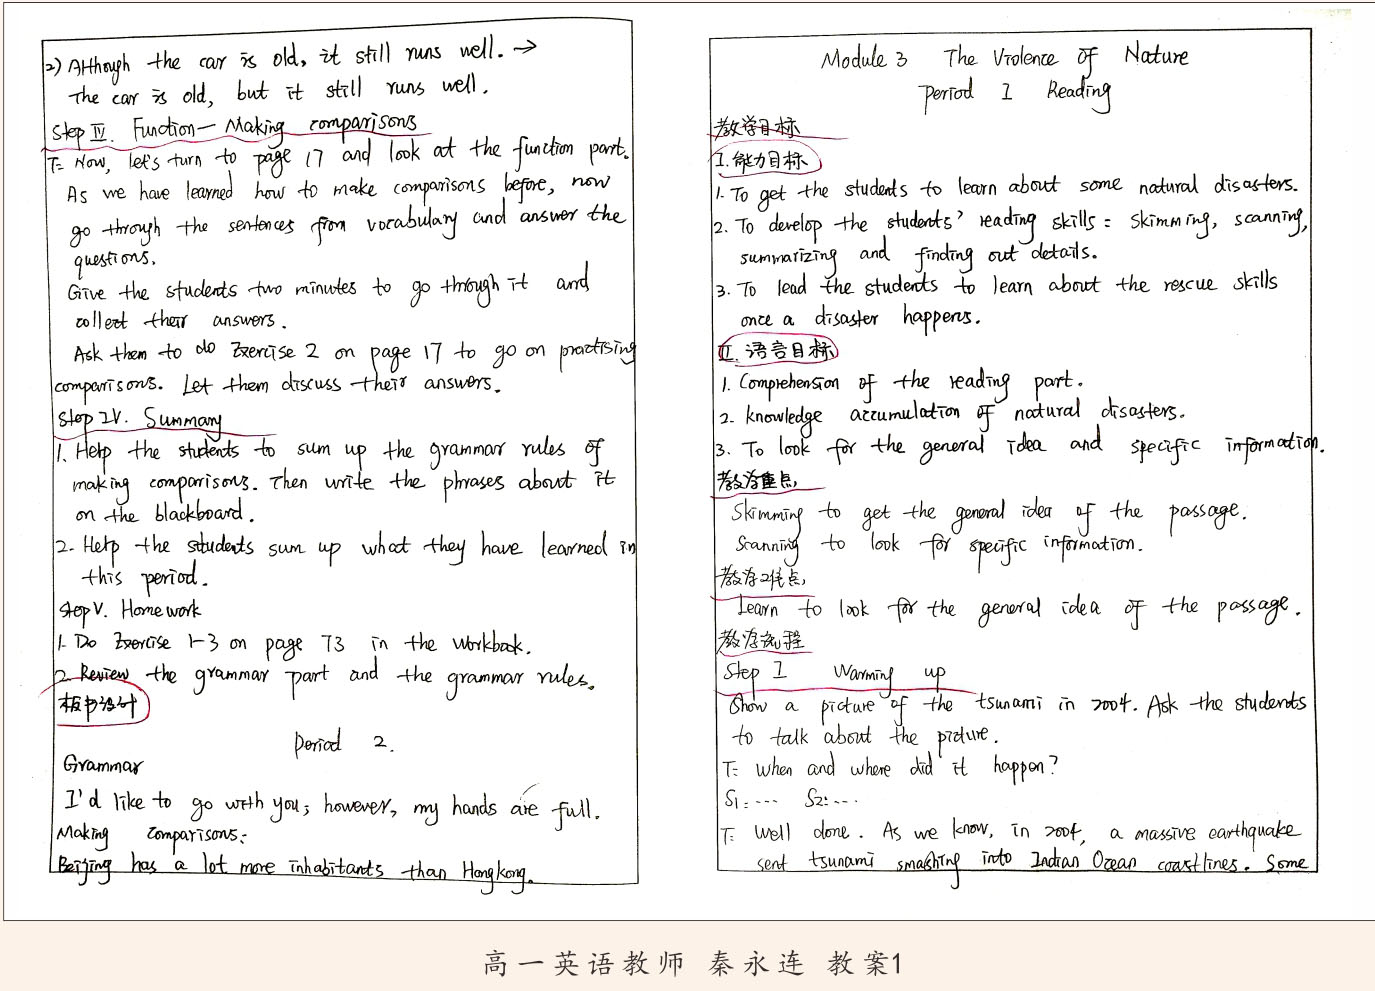 2) Although the car is old, it still runs well. →
The car is old, but it still runs well.
Step IV. Function — Making comparisons
T: Now, let's turn to page 17 and look at the function part.
As we have learned how to make comparisons before, now
go through the sentences from vocabulary and answer the
questions.
Give the students two minutes to go through it and
collect their answers.
Ask them to do Exercise 2 on page 17 to go on practising
comparisons. Let them discuss their answers.
Step IV. Summary
1. Help the students to sum up the grammar rules of
making comparisons. Then write the phrases about it
on the blackboard.
2. Help the students sum up what they have learned in
this period.
Step V. Homework
1. Do Exercise 1-3 on page 73 in the workbook.
2. Review the grammar part and the grammar rules.
板书设计
Period 2.
Grammar
I'd like to go with you; however, my hands are full.
Making comparisons:
Beijing has a lot more inhabitants than Hongkong.
Module 3 The Violence of Nature
Period 1 Reading
教学目标
I. 能力目标
1. To get the students to learn about some natural disasters.
2. To develop the students' reading skills: skimming, scanning,
summarizing and finding out details.
3. To lead the students to learn about the rescue skills
once a disaster happens.
II. 语言目标
1. Comprehension of the reading part.
2. Knowledge accumulation of natural disasters.
3. To look for the general idea and specific information.
教学重点
Skimming to get the general idea of the passage.
Scanning to look for specific information.
教学难点
Learn to look for the general idea of the passage.
教学流程
Step I Warming up
Show a picture of the tsunami in 2004. Ask the students
to talk about the picture.
T: When and where did it happen?
S1: ... S2: ...
T: Well done. As we know, in 2004, a massive earthquake
sent tsunami smashing into Indian Ocean coastlines. Some
高一英语教师 秦永连 教案1